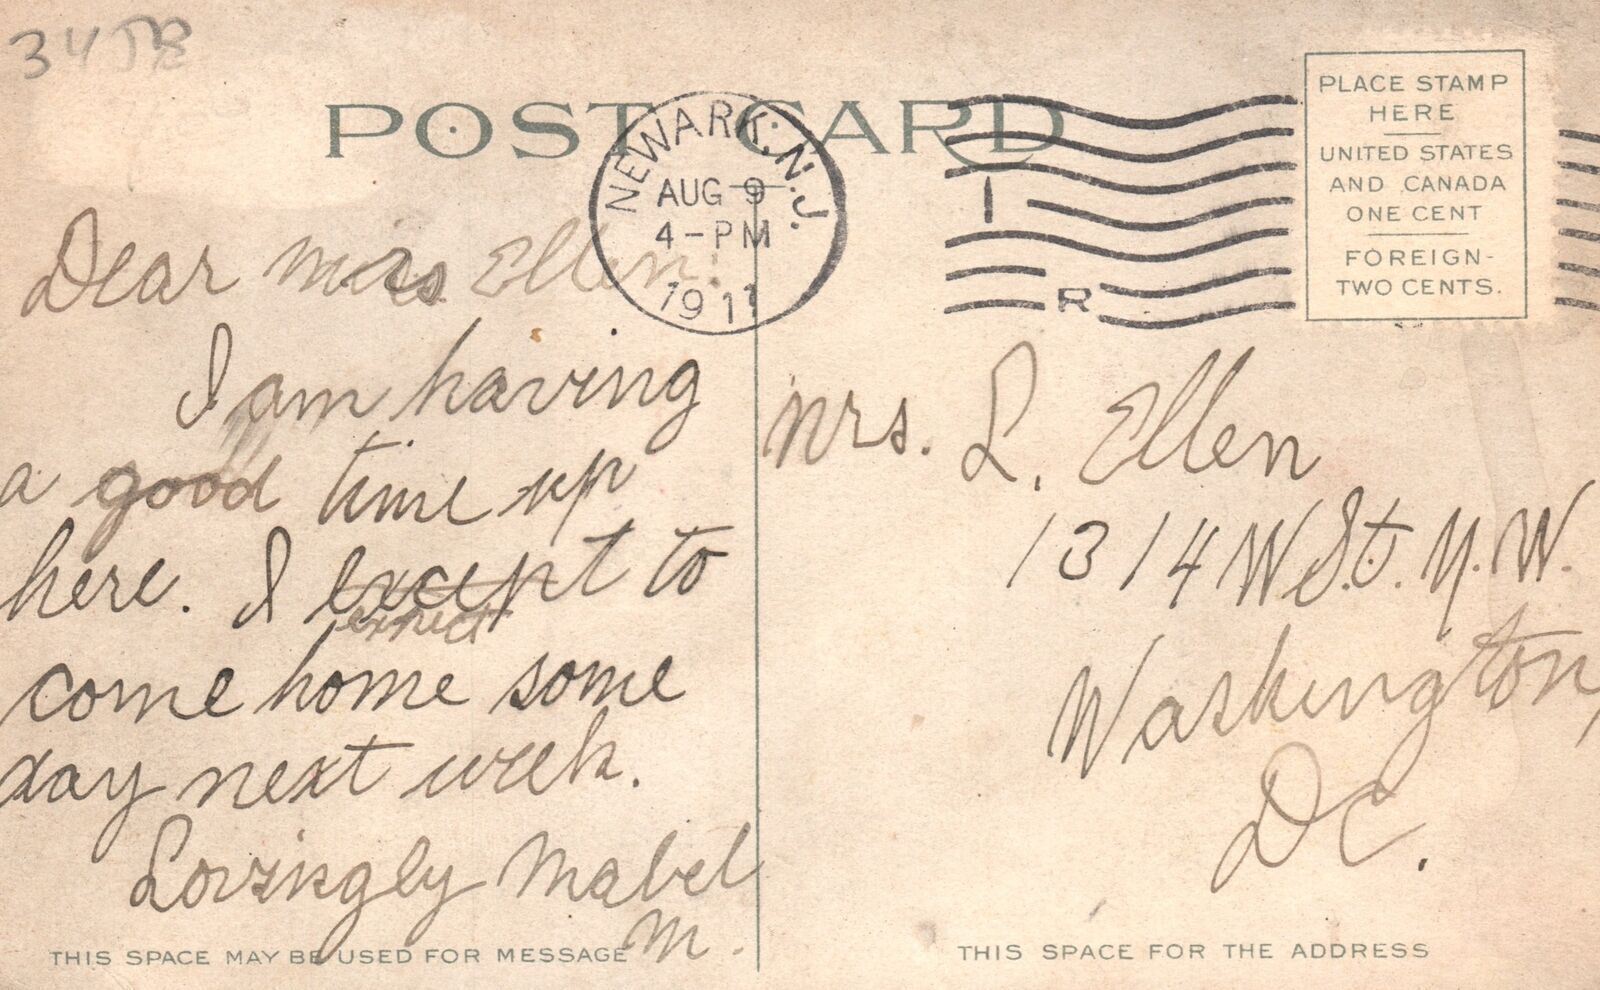 POST CARD
NEWARK, N.J.
AUG 9
4-PM
1911
1
R
PLACE STAMP
HERE
UNITED STATES
AND CANADA
ONE CENT
FOREIGN-
TWO CENTS.
Dear Mrs Ellen:
I am having
a good time up
here. I except to
expect
come home some
day next week.
Lovingly Mabel
M.
THIS SPACE MAY BE USED FOR MESSAGE
Mrs. L. Ellen
1314 W St. N.W.
Washington,
DC.
THIS SPACE FOR THE ADDRESS